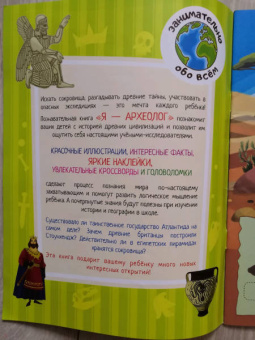 занимательно
обо всём
Искать сокровища, разгадывать древние тайны, участвовать в
опасных экспедициях – это мечта каждого ребёнка!
Познавательная книга «Я — АРХЕОЛОГ» познакомит
ваших детей с историей древних цивилизаций и позволит им
ощутить себя настоящими учёными-исследователями.
КРАСОЧНЫЕ ИЛЛЮСТРАЦИИ, ИНТЕРЕСНЫЕ ФАКТЫ,
ЯРКИЕ НАКЛЕЙКИ,
УВЛЕКАТЕЛЬНЫЕ КРОССВОРДЫ И ГОЛОВОЛОМКИ
сделает процесс познания мира по-настоящему
захватывающим и помогут развить логическое мышление
ребёнка. А почерпнутые знания будут полезны при изучении
истории и географии в школе.
Существовало ли таинственное государство Атлантида на
самом деле? Зачем древние британцы построили
Стоунхендж? Действительно ли в египетских пирамидах
хранятся сокровища?
Эта книга подарит вашему ребёнку много новых
интересных открытий!